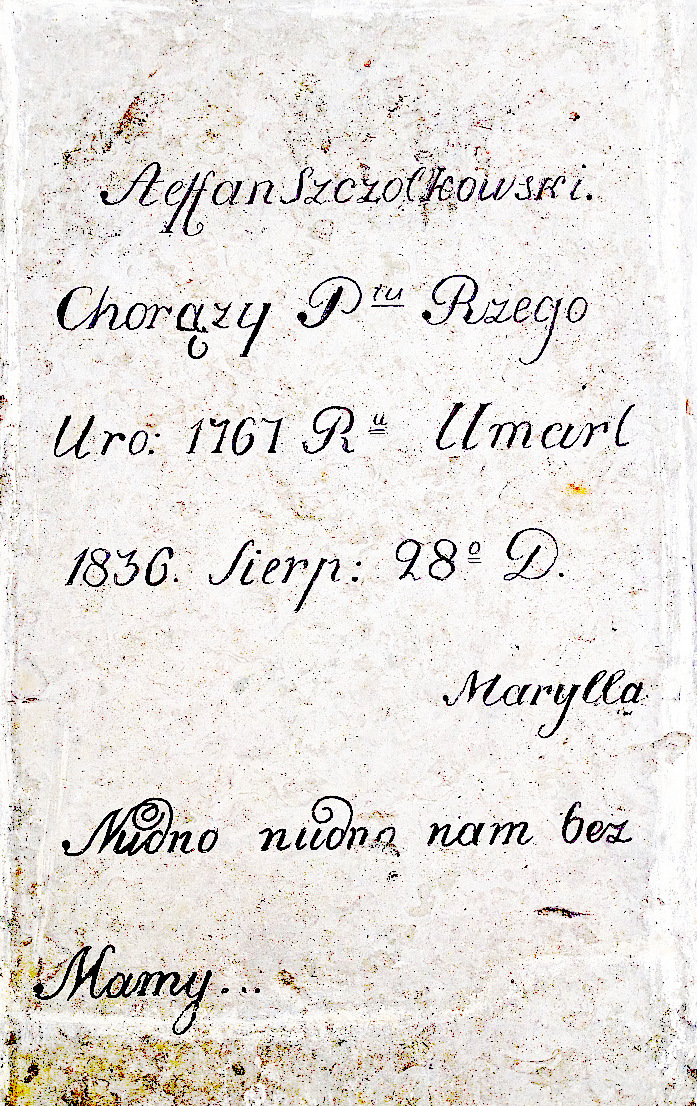 Steffan Szczolkowski.
Chorązy Ptu Rzego
Uro: 1767 Ru Umarl
1836. Sierp: 28o D.
Marylla
Nudno nudno nam bez
Mamy...